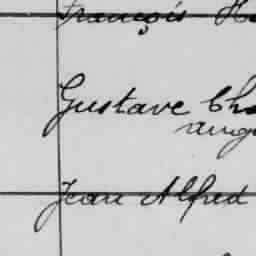 François
Gustave
Jean Alfred